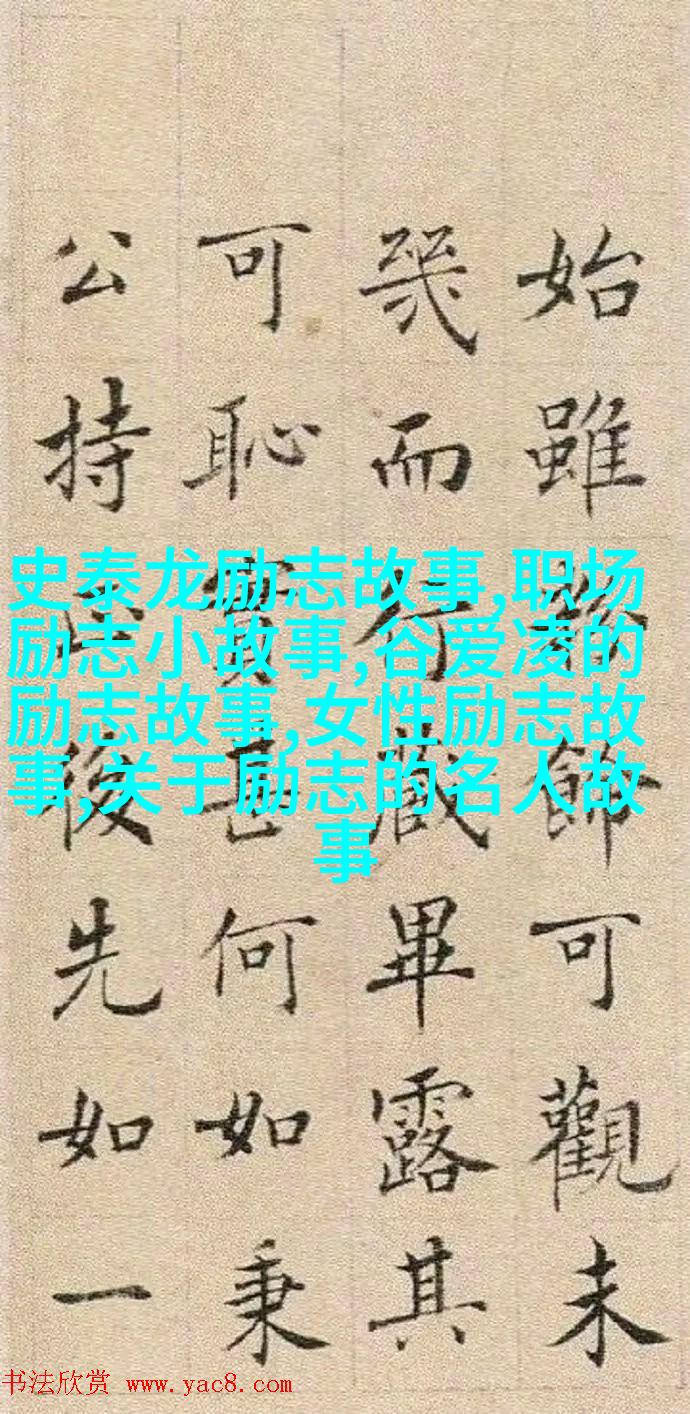 始雖飾可觀未
幾而行藏畢露其
可恥實甚何如秉
公持後先如一
史泰龙励志故事,职场
励志小故事,谷爱凌的
励志故事,女性励志故
事,关于励志的名人故
事
书法欣赏 www.yac8.com